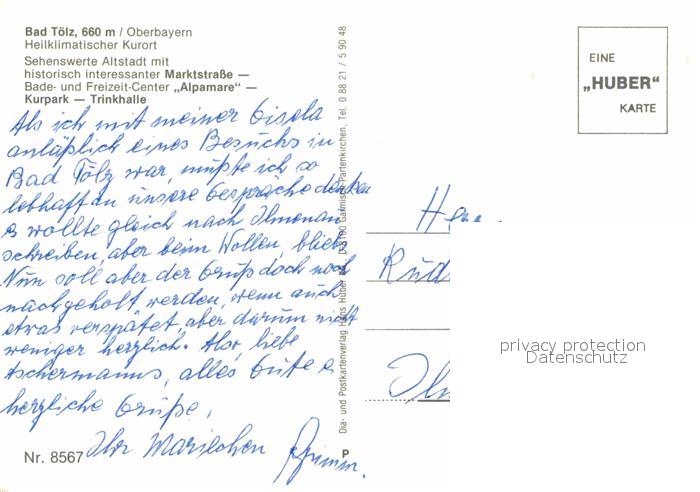 Bad Tölz, 660 m / Oberbayern
Heilklimatischer Kurort
Sehenswerte Altstadt mit
historisch interessanter Marktstraße —
Bade- und Freizeit-Center „Alpamare“ —
Kurpark — Trinkhalle
Als ich mit meiner Gisela
anläßlich eines Besuchs in
Bad Tölz war, mußte ich so
lebhaft an unsere Gespräche denken
wollte gleich nach Ilmenau
schreiben, aber beim Wollen blieb
Nun soll aber der Gruß doch noch
nachgeholt werden, wenn auch
etwas verspätet, aber darum nicht
weniger herzlich. Also, liebe
Aschermanns, alles Gute
herzliche Grüße,
Ihr Mariechen Grimm.
Nr. 8567
Dia- und Postkartenverlag Hans Huber D-8100 Garmisch-Partenkirchen, Tel. 0 88 21 / 5 90 48
P
EINE
„HUBER“
KARTE
Rud
Ilm
privacy protection
Datenschutz